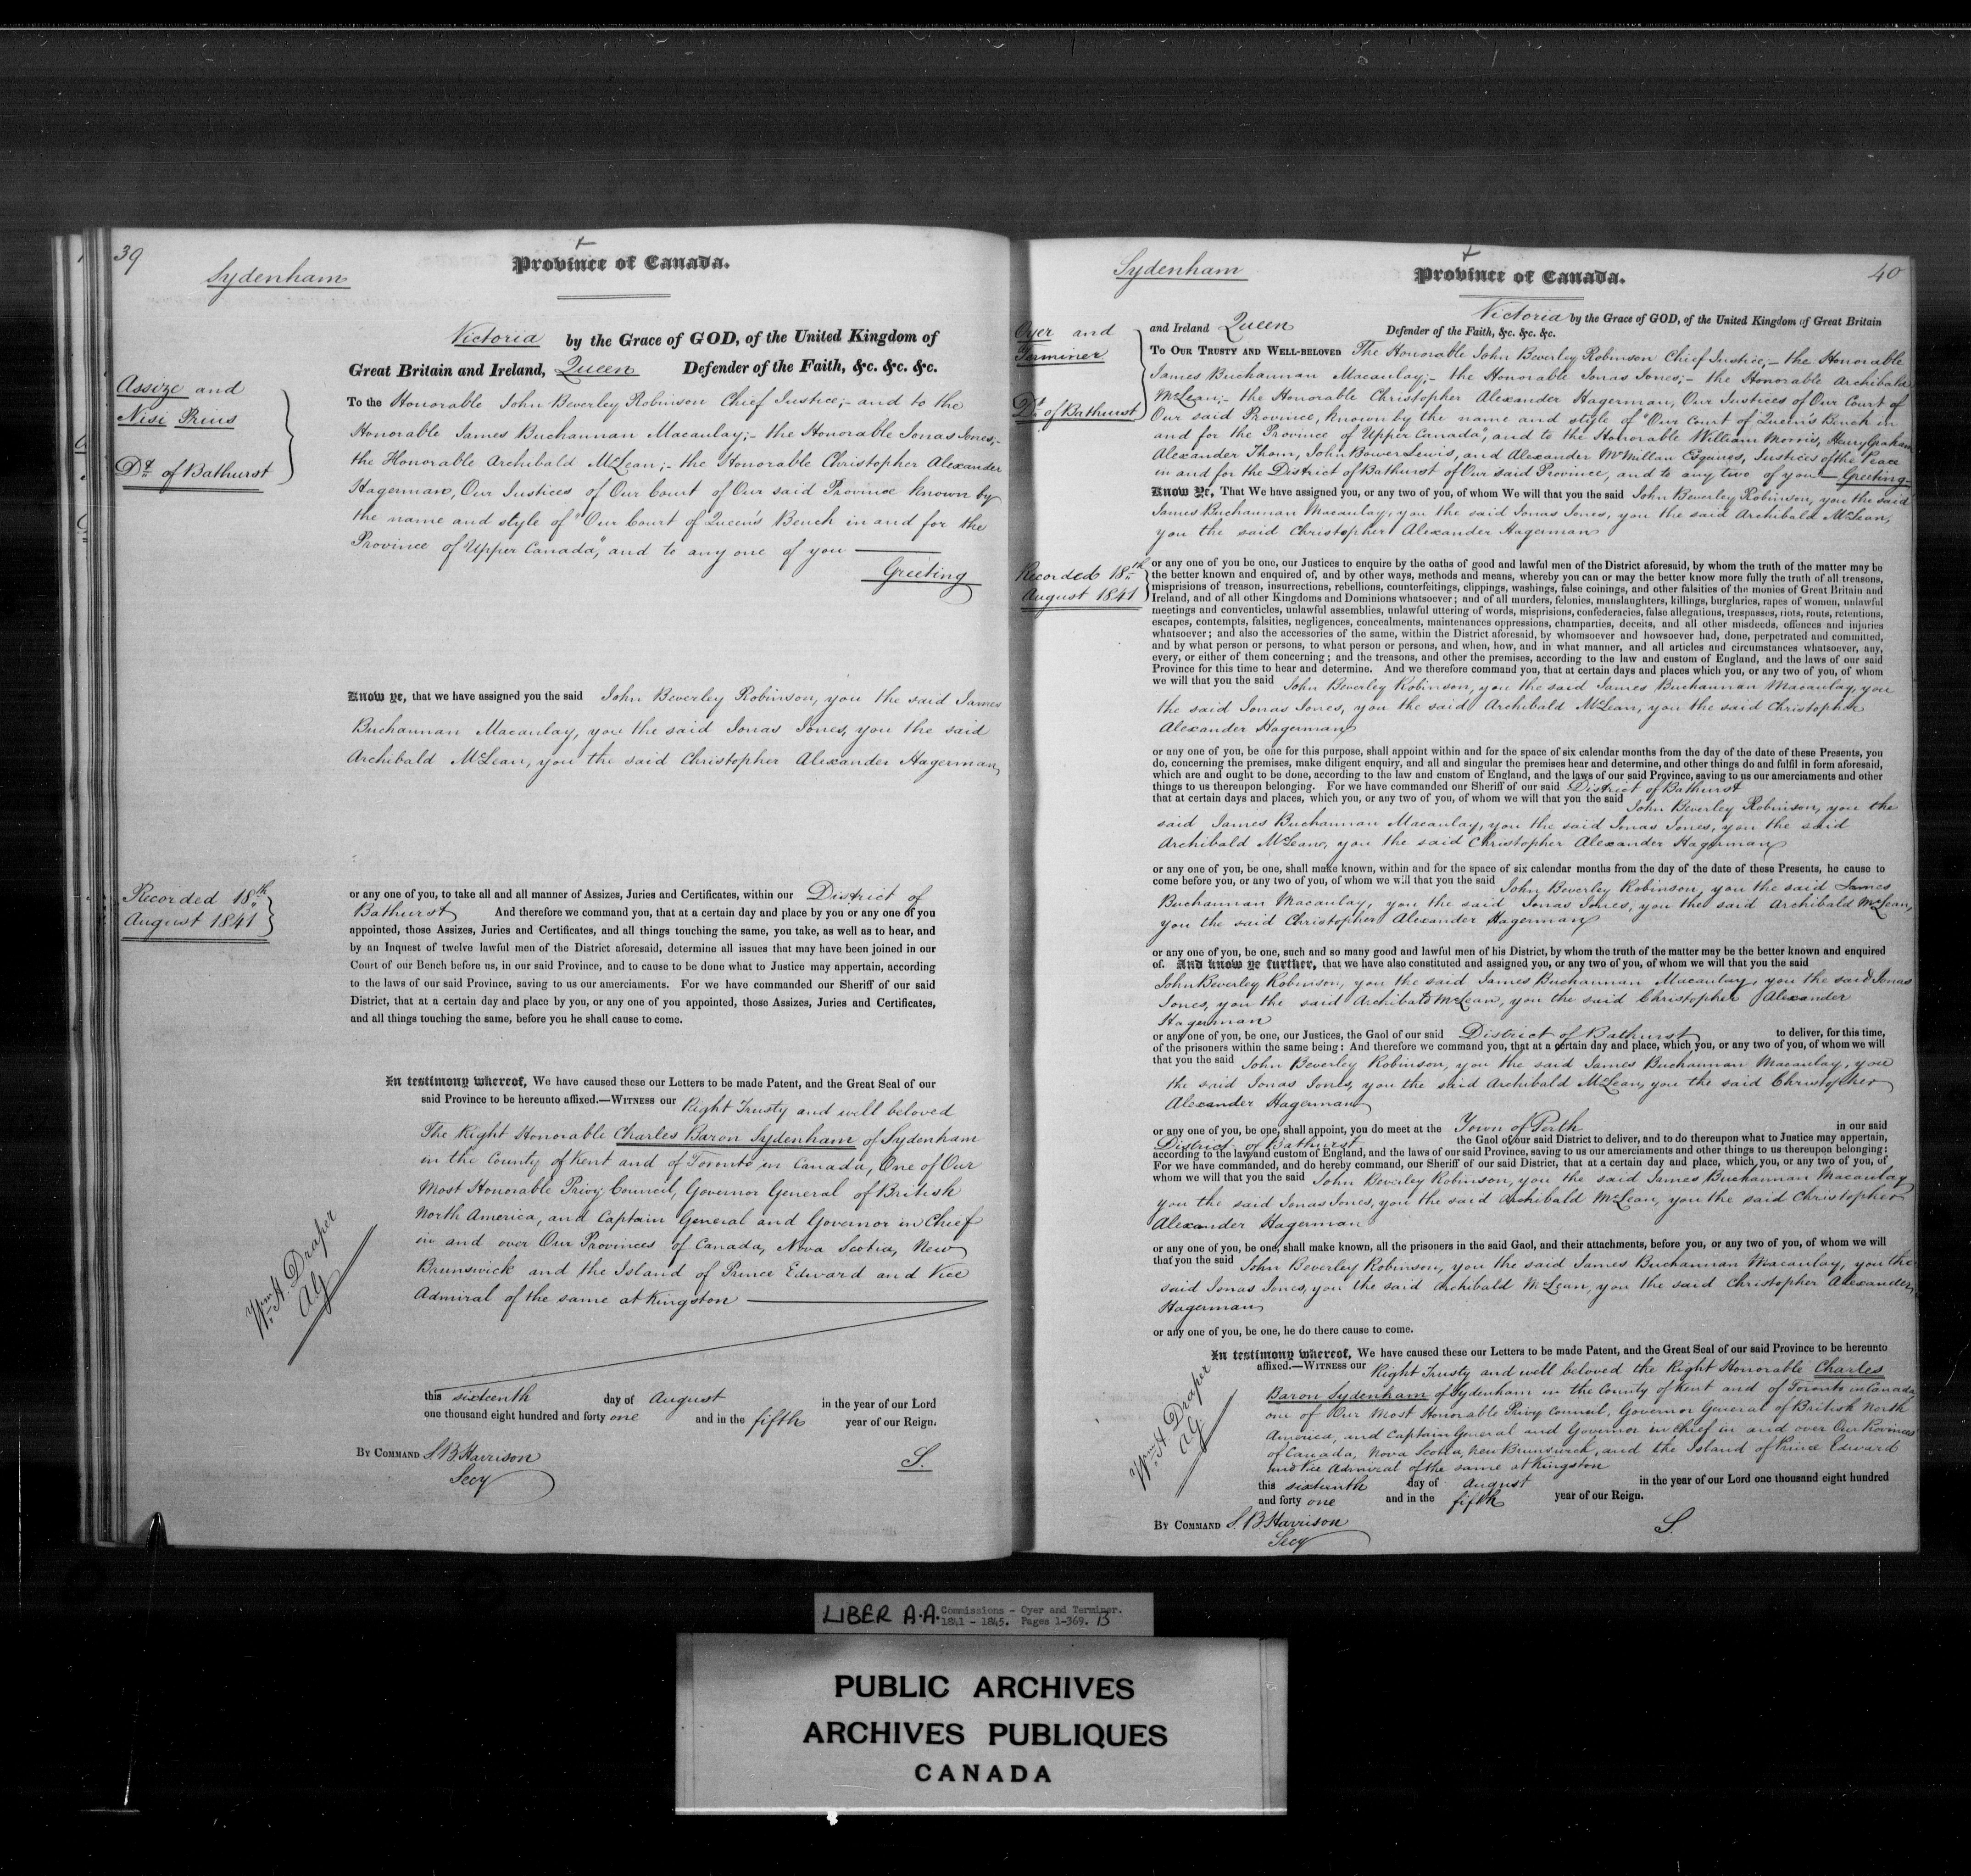 39
Sydenham
Province of Canada.
Victoria by the Grace of GOD, of the United Kingdom of
Great Britain and Ireland, Queen Defender of the Faith, &c. &c. &c.
Assize and
Nisi Prius
Dt of Bathurst
To the Honorable John Beverley Robinson Chief Justice;- and to the
Honorable James Buchannan Macaulay;- the Honorable Jonas Jones;-
the Honorable Archibald McLean;- the Honorable Christopher Alexander
Hagerman, Our Justices of Our Court of Our said Province known by
the name and style of "Our Court of Queen's Bench in and for the
Province of Upper Canada," and to any one of you
Greeting
Know ye, that we have assigned you the said John Beverley Robinson, you the said James
Buchannan Macaulay, you the said Jonas Jones, you the said
Archibald McLean, you the said Christopher Alexander Hagerman,
Recorded 18th
August 1841
or any one of you, to take all and all manner of Assizes, Juries and Certificates, within our District of
Bathurst And therefore we command you, that at a certain day and place by you or any one of you
appointed, those Assizes, Juries and Certificates, and all things touching the same, you take, as well as to hear, and
by an Inquest of twelve lawful men of the District aforesaid, determine all issues that may have been joined in our
Court of our Bench before us, in our said Province, and to cause to be done what to Justice may appertain, according
to the laws of our said Province, saving to us our amerciaments. For we have commanded our Sheriff of our said
District, that at a certain day and place by you, or any one of you appointed, those Assizes, Juries and Certificates,
and all things touching the same, before you he shall cause to come.
In testimony whereof, We have caused these our Letters to be made Patent, and the Great Seal of our
said Province to be hereunto affixed.—WITNESS our Right Trusty and well beloved
The Right Honorable Charles Baron Sydenham of Sydenham
in the County of Kent and of Toronto in Canada, One of Our
Most Honorable Privy Council, Governor General of British
North America, and Captain General and Governor in Chief
in and over Our Provinces of Canada, Nova Scotia, New
Brunswick and the Island of Prince Edward and Vice
Admiral of the same at Kingston
Wm. H. Draper
AG
this sixteenth day of August in the year of our Lord
one thousand eight hundred and forty one and in the fifth year of our Reign.
BY COMMAND S. B. Harrison
Secy
S.
Sydenham
Province of Canada.
40
Victoria by the Grace of GOD, of the United Kingdom of Great Britain
and Ireland Queen Defender of the Faith, &c. &c. &c.
Oyer and
Terminer
Dt of Bathurst
TO OUR TRUSTY AND WELL-BELOVED The Honorable John Beverley Robinson Chief Justice;- the Honorable
James Buchannan Macaulay;- the Honorable Jonas Jones;- the Honorable Archibald
McLean;- the Honorable Christopher Alexander Hagerman, Our Justices of Our Court of
Our said Province, known by the name and style of "Our Court of Queen's Bench in
and for the Province of Upper Canada", and to the Honorable William Morris, Henry Graham
Alexander Thom, John Bower Lewis, and Alexander McMillan Esquires, Justices of the Peace
in and for the District of Bathurst of Our said Province, and to any two of you Greeting
Know Ye, That We have assigned you, or any two of you, of whom We will that you the said John Beverley Robinson, you the said
James Buchannan Macaulay, you the said Jonas Jones, you the said Archibald McLean,
you the said Christopher Alexander Hagerman
Recorded 18th
August 1841
or any one of you be one, our Justices to enquire by the oaths of good and lawful men of the District aforesaid, by whom the truth of the matter may be
the better known and enquired of, and by other ways, methods and means, whereby you can or may the better know more fully the truth of all treasons,
misprisions of treason, insurrections, rebellions, counterfeitings, clippings, washings, false coinings, and other falsities of the monies of Great Britain and
Ireland, and of all other Kingdoms and Dominions whatsoever; and of all murders, felonies, manslaughters, killings, burglaries, rapes of women, unlawful
meetings and conventicles, unlawful assemblies, unlawful uttering of words, misprisions, confederacies, false allegations, trespasses, riots, routs, retentions,
escapes, contempts, falsities, negligences, concealments, maintenances oppressions, champarties, deceits, and all other misdeeds, offences and injuries
whatsoever; and also the accessories of the same, within the District aforesaid, by whomsoever and howsoever had, done, perpetrated and committed,
and by what person or persons, to what person or persons, and when, how, and in what manner, and all articles and circumstances whatsoever, any,
every, or either of them concerning; and the treasons, and other the premises, according to the law and custom of England, and the laws of our said
Province for this time to hear and determine. And we therefore command you, that at certain days and places which you, or any two of you, of whom
we will that you the said John Beverley Robinson, you the said James Buchannan Macaulay, you
the said Jonas Jones, you the said Archibald McLean, you the said Christopher
Alexander Hagerman
or any one of you, be one for this purpose, shall appoint within and for the space of six calendar months from the day of the date of these Presents, you
do, concerning the premises, make diligent enquiry, and all and singular the premises hear and determine, and other things do and fulfil in form aforesaid,
which are and ought to be done, according to the law and custom of England, and the laws of our said Province, saving to us our amerciaments and other
things to us thereupon belonging. For we have commanded our Sheriff of our said District of Bathurst
that at certain days and places, which you, or any two of you, of whom we will that you the said John Beverley Robinson, you the
said James Buchannan Macaulay, you the said Jonas Jones, you the said
Archibald McLean, you the said Christopher Alexander Hagerman
or any one of you, be one, shall make known, within and for the space of six calendar months from the day of the date of these Presents, he cause to
come before you, or any two of you, of whom we will that you the said John Beverley Robinson, you the said James
Buchannan Macaulay, you the said Jonas Jones, you the said Archibald McLean,
you the said Christopher Alexander Hagerman
or any one of you, be one, such and so many good and lawful men of his District, by whom the truth of the matter may be the better known and enquired
of. And know ye further, that we have also constituted and assigned you, or any two of you, of whom we will that you the said
John Beverley Robinson, you the said James Buchannan Macaulay, you the said Jonas
Jones, you the said Archibald McLean, you the said Christopher Alexander
Hagerman
or any one of you, be one, our Justices, the Gaol of our said District of Bathurst to deliver, for this time,
of the prisoners within the same being: And therefore we command you, that at a certain day and place, which you, or any two of you, of whom we will
that you the said John Beverley Robinson, you the said James Buchannan Macaulay, you
the said Jonas Jones, you the said Archibald McLean, you the said Christopher
Alexander Hagerman
or any one of you, be one, shall appoint, you do meet at the Town of Perth in our said
District of Bathurst the Gaol of our said District to deliver, and to do thereupon what to Justice may appertain,
according to the law and custom of England, and the laws of our said Province, saving to us our amerciaments and other things to us thereupon belonging:
For we have commanded, and do hereby command, our Sheriff of our said District, that at a certain day and place, which you, or any two of you, of
whom we will that you the said John Beverley Robinson, you the said James Buchannan Macaulay
you the said Jonas Jones, you the said Archibald McLean, you the said Christopher
Alexander Hagerman
or any one of you, be one, shall make known, all the prisoners in the said Gaol, and their attachments, before you, or any two of you, of whom we will
that you the said John Beverley Robinson, you the said James Buchannan Macaulay, you the
said Jonas Jones, you the said Archibald McLean, you the said Christopher Alexander
Hagerman
or any one of you, be one, he do there cause to come.
In testimony whereof, We have caused these our Letters to be made Patent, and the Great Seal of our said Province to be hereunto
affixed.—WITNESS our Right Trusty and well beloved the Right Honorable Charles
Baron Sydenham of Sydenham in the County of Kent and of Toronto in Canada,
one of Our Most Honorable Privy Council, Governor General of British North
America, and Captain General and Governor in Chief in and over Our Provinces
of Canada, Nova Scotia, New Brunswick, and the Island of Prince Edward
and Vice Admiral of the same at Kingston
Wm. H. Draper
AG
this sixteenth day of August in the year of our Lord one thousand eight hundred
and forty one and in the fifth year of our Reign.
BY COMMAND S. B. Harrison
Secy
S.
LIBER A.A. Commissions - Oyer and Terminer.
1841 - 1845. Pages 1-369. B
PUBLIC ARCHIVES
ARCHIVES PUBLIQUES
CANADA